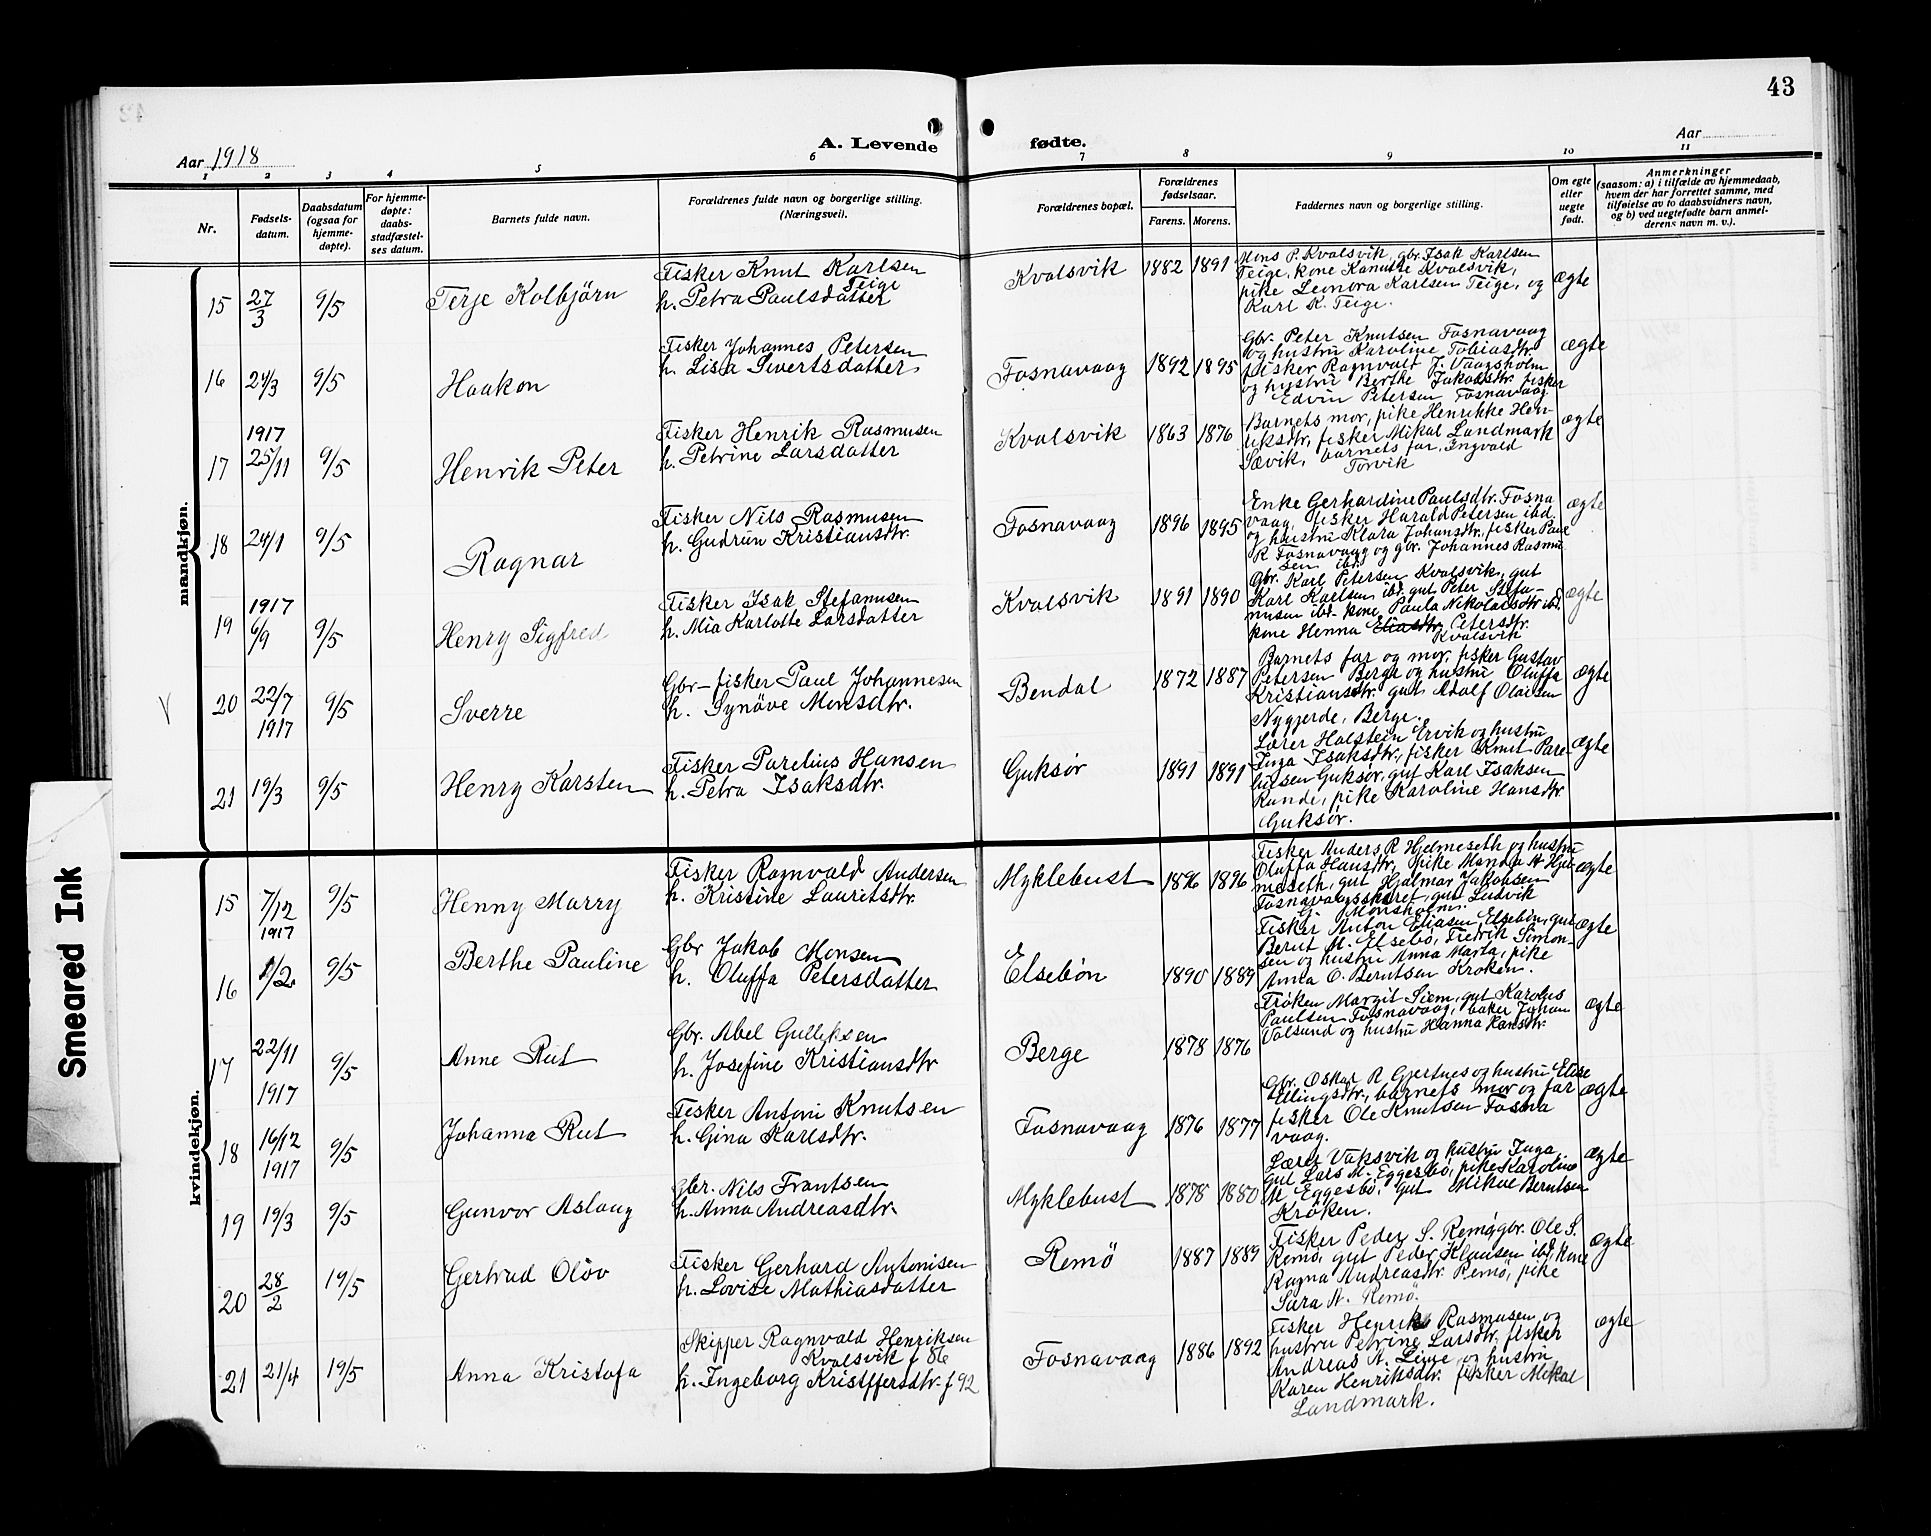 43
Aar 1918
A. Levende fødte.
Aar
1 2 3 4 5 6 7 8 9 10 11
Nr.
Fødsels-
datum.
Daabsdatum
(ogsaa for
hjemme-
døpte).
For hjemme-
døpte:
daabs-
stadfæstel-
ses datum.
Barnets fulde navn.
Forældrenes fulde navn og borgerlige stilling.
(Næringsvei).
Forældrenes bopæl.
Forældrenes
fødselsaar.
Farens. Morens.
Faddernes navn og borgerlige stilling.
Om egte
eller
uegte
født.
Anmerkninger
(saasom: a) i tilfælde av hjemmedaab,
hvem der har forrettet samme, med
tilføielse av to daabsvidners navn,
og b) ved uegtefødte barn anmel-
derens navn m. v.).
mandkjøn.
15 27/3 9/5 Terje Kolbjörn
Fisker Knut Karlsen
Teige
h. Petra Paulsdatter
Kvalsvik 1882 1891
Mons P. Kvalsvik, gbr. Isak Karlsen
Teige, kone Kvalsvik,
pike Leonora Karlsen Teige, og
Karl K. Teige.
ægte
16 24/3 9/5 Haakon
Fisker Johannes Petersen
h. Lisa Sivertsdatter
Fosnavaag 1892 1895
Gbr. Peter Knutsen Fosnavaag
og hustru Karoline Tobiasdtr.
fisker Ragnvalt J. Vaagsholm
og hustru Berthe Jakobsdtr. fisker
Edvin Petersen Fosnavaag
ægte
17 1917 25/11 9/5 Henrik Peter
Fisker Henrik Rasmusen
h. Petrine Larsdatter
Kvalsvik 1863 1876
Barnets mor, pike Henrikke Hen-
riksdtr, fisker Mikal Landmark
Sævik, barnets far, Ingvald
Torvik
ægte
18 24/1 9/5 Ragnar
Fisker Nils Rasmusen
h. Gudrun Kristiansdtr.
Fosnavaag 1896 1895
Enke Gerhardine Paulsdtr. Fosna
vaag, fisker Harald Petersen ibd.
og hustru Klara Johansdtr, fisker Paul
R Fosnavaag og gbr. Johannes Rasmu
sen ibd.
ægte
19 1917 6/9 9/5 Henry Sigfred
Fisker Isak Stefanusen
h. Mia Karlotte Larsdatter
Kvalsvik 1891 1890
Gbr. Karl Petersen Kvalsvik, gut
Karl Karlsen ibd. gut Peter Stefa-
nusen ibd. kone Paula Nikolaisdtr ibd.
kone Henna Eliasdtr Petersdtr.
Kvalsvik
ægte
V
20 22/7 1917 9/5 Sverre
Gbr-fisker Paul Johannesen
h. Synöve Monsdtr.
Bendal 1872 1887
Barnets far og mor, fisker Gustav
Petersen Berge og hustru Oluffa
Kristiansdtr. gut Adolf Olaisen
Nygjerde, Berge.
ægte
21 19/3 9/5 Henry Karsten
Fisker Parelius Hansen
h. Petra Isaksdtr.
Guksør 1891 1891
Lærer Halstein Ervik og hustru
Inga Isaksdtr, fisker Knut Pare-
liusen Guksør, gut Karl Isaksen
Runde, pike Karoline Hansdtr.
Guksør.
ægte
kvindekjøn.
15 7/12 1917 9/5 Henny Marry
Fisker Ragnvald Andersen
h. Kristine Lauritsdtr.
Myklebust 1896 1896
Fisker Anders R Hjelmeseth og hustru
Oluffa Hansdtr, pike Manda A Hjel-
meseth, gut Hjalmar Jakobsen
Fosnavaagsskaret, gut Ludvik
G. Monsholm.
ægte
16 1/2 9/5 Berthe Pauline
Gbr Jakob Monsen
h. Oluffa Petersdatter
Elsebön 1890 1889
Fisker Anton Eliasen Elsebön, gut
Bernt M. Elsebö, Fredrik Simon-
sen og hustru Anna Marta, pike
Anna O. Berntsen Kroken.
ægte
17 22/11 1917 9/5 Anne Rut
Gbr. Abel Gulleksen
h. Josefine Kristiansdtr
Berge 1878 1876
Frøken Margit Siem, gut Karolus
Paulsen Fosnavaag, baker Johan
Valsund og hustru Hanna Hansdtr.
ægte
18 16/12 1917 9/5 Johanna Rut
Fisker Antoni Knutsen
h. Gina Karlsdtr.
Fosnavaag 1876 1877
Gbr. Oskar R Gjertnes og hustru Elise
Ellingsdtr., barnets mor og far
fisker Ole Knutsen Fosna
vaag.
ægte
19 19/3 9/5 Gunvor Aslaug
gbr. Nils Frantsen
h. Anna Andreasdtr.
Myklebust 1878 1880
Lærer Vaksvik og hustru Inga
Gut Lars M. Eggesbö, pike Karoline
M Eggesbö, gut Mikal Berntsen
Kröken.
ægte
20 28/2 19/5 Gertrud Olöv
Fisker Gerhard Antonisen
h. Lovise Mathiasdatter
Remö 1887 1889
Fisker Peder S. Remö, gbr. Ole S.
Remö, gut Peder Klausen ibd, kone
Ragna Andreasdtr. Remö, pike
Sara A. Remö.
ægte
21 21/4 19/5 Anna Kristofa
Skipper Ragnvald Henriksen
Kvalsvik f 86
h. Ingeborg Kristffersdtr. f 92
Fosnavaag 1886 1892
Fisker Henrik Rasmusen og
hustru Petrine Larsdtr, fisker
Andreas A. Leine og hustru
Karen Henriksdtr. fisker Mikal
Landmark.
ægte
Smeared Ink